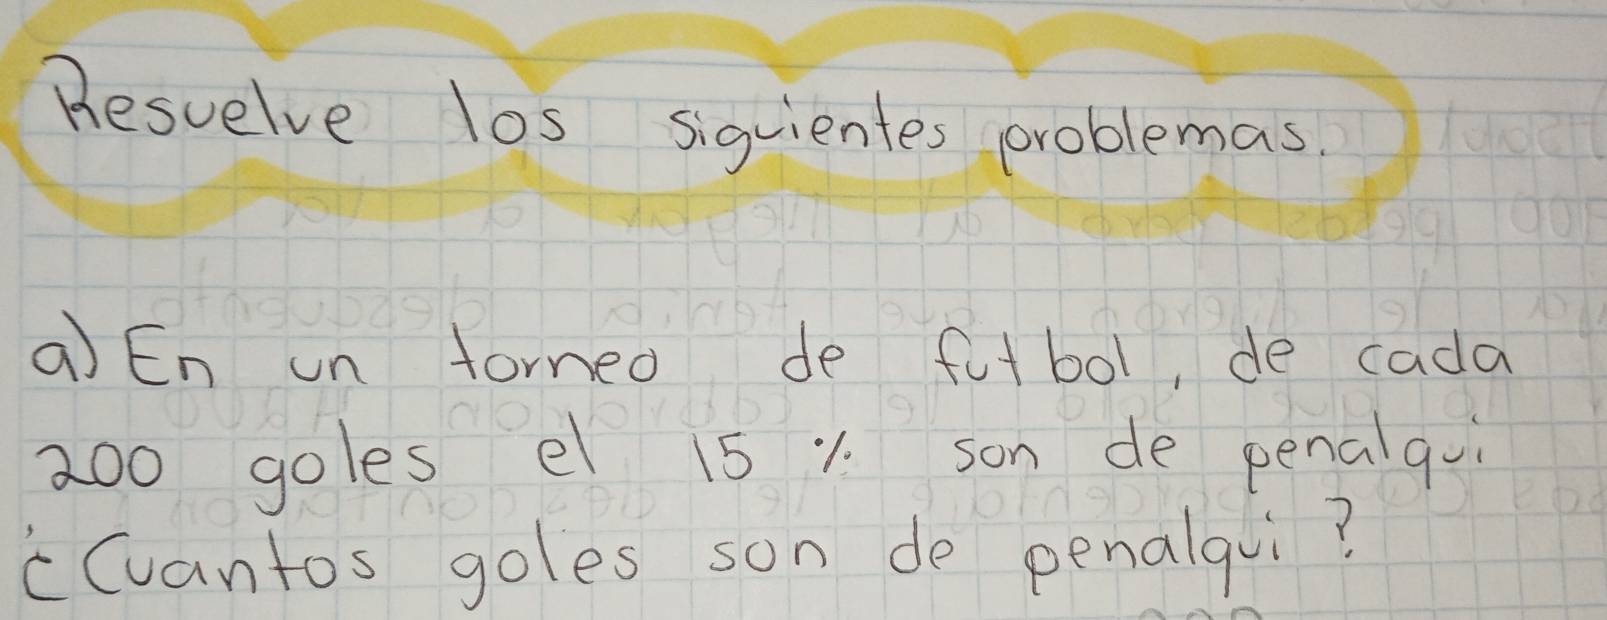 Resuelve los siguientes problemas.
a) En un torneo de futbol, de cada
200 goles el 15 % son de penalqui
¿Cuantos goles son de penalqui?